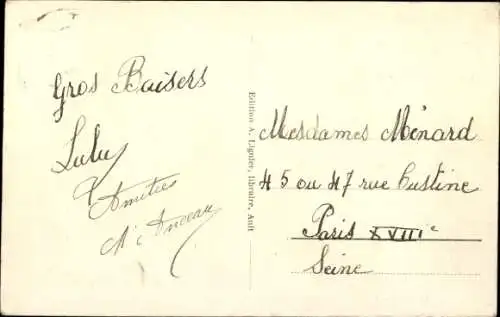 Gros Baisers
Lulu
Amitiés
Edition A. Lignier, libraire, Ault
Mesdames Ménard
45 ou 47 rue Custine
Paris XVIIIe
Seine